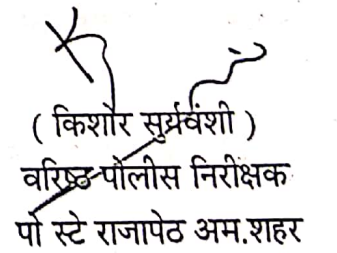 ( किशोर सुर्यवंशी )
वरिष्ठ पोलीस निरीक्षक
पो स्टे राजापेठ अम.शहर